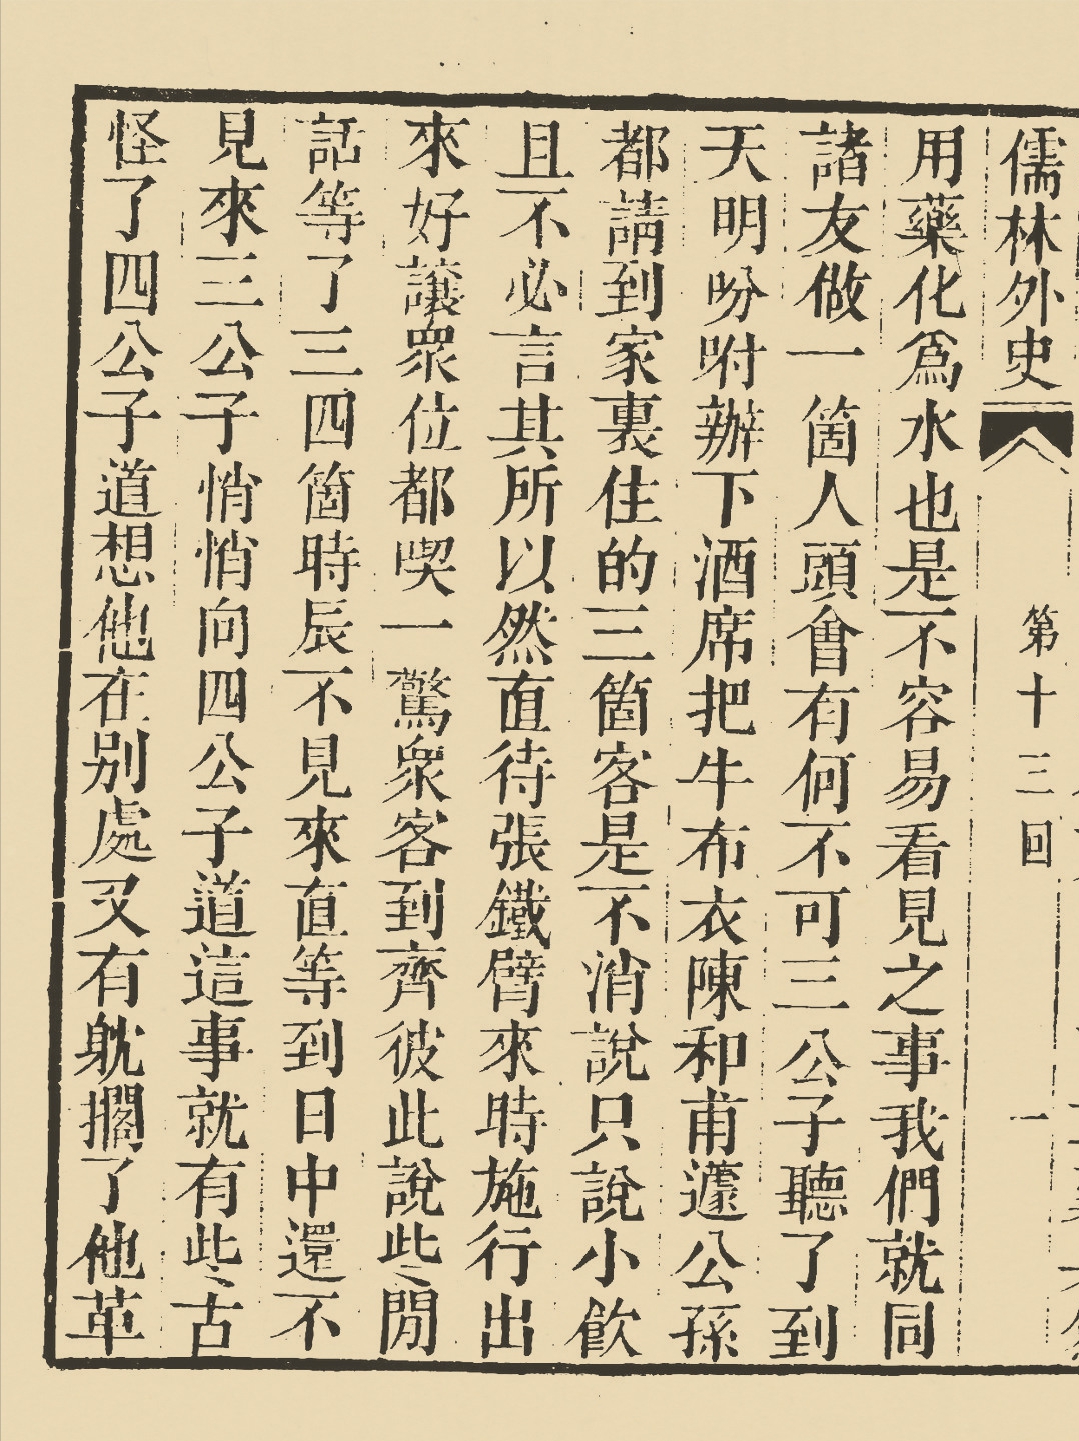 儒林外史 第十三回 一
用藥化爲水也是不容易看見之事我們就同
諸友做一箇人頭會有何不可三公子聽了到
天明吩咐辦下酒席把牛布衣陳和甫蘧公孫
都請到家裏住的三箇客是不消說只說小飲
且不必言其所以然直待張鐵臂來時施行出
來好讓衆位都喫一驚衆客到齊彼此說些閒
話等了三四箇時辰不見來直等到日中還不
見來三公子悄悄向四公子道這事就有些古
怪了四公子道想他在别處又有躭擱了他革